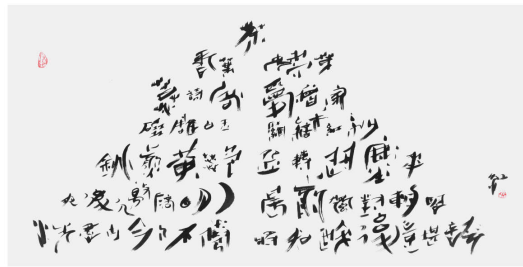 茶
香葉 嫩芽
慕詩客 愛僧家
碾雕白玉 羅織紅紗
銚煎黃蕊色 碗轉麴塵花
夜後邀陪明月 晨前獨對朝霞
洗盡古今人不倦 將知醉後豈堪誇